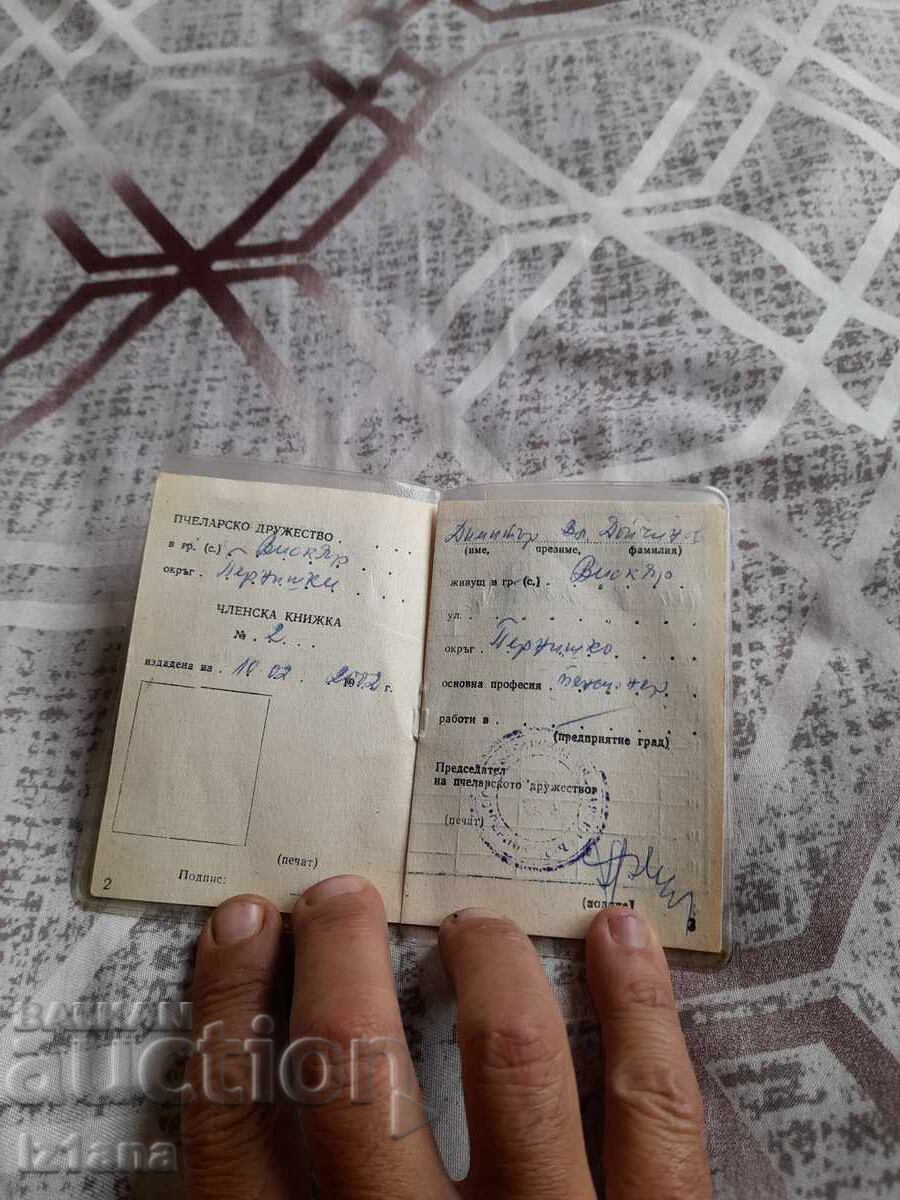 ПЧЕЛАРСКО ДРУЖЕСТВО . . . .
в гр. (с.) Вискяр
окръг. Пернишки
ЧЛЕНСКА КНИЖКА
№ . 2 . . .
издадена на . 10.02. 2002 г.
(печат)
Подпис:
2
Димитър Вл. Дойчинов
(име, презиме, фамилия)
живущ в гр. (с.) Вискяр
ул.
окръг . Пернишко
основна професия . пенсионер
работи в .
(предприятие град)
Председател
на пчеларското дружество:
(печат)
(подпис)
3
BALKAN
auction
iz1ana